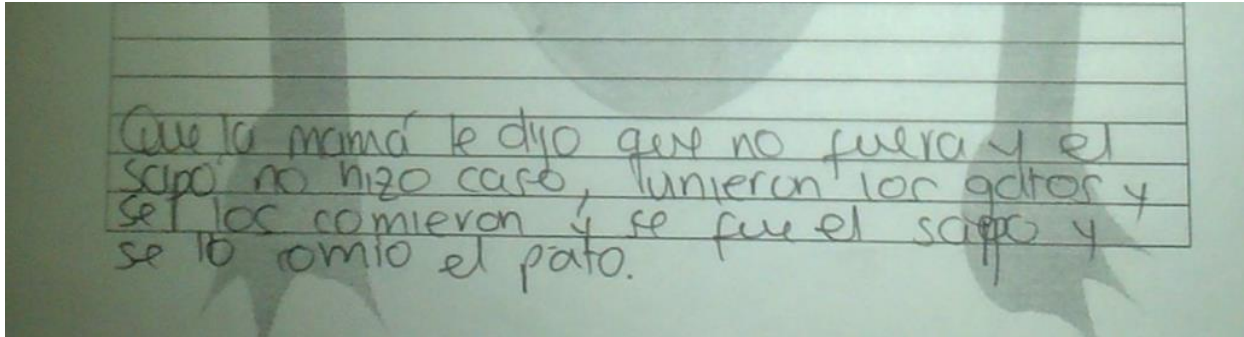 Que la mamá le dijo que no fuera y el
sapo no hizo caso, lunieron los gatos y
se los comieron y se fue el sappo y
se lo omio el pato.